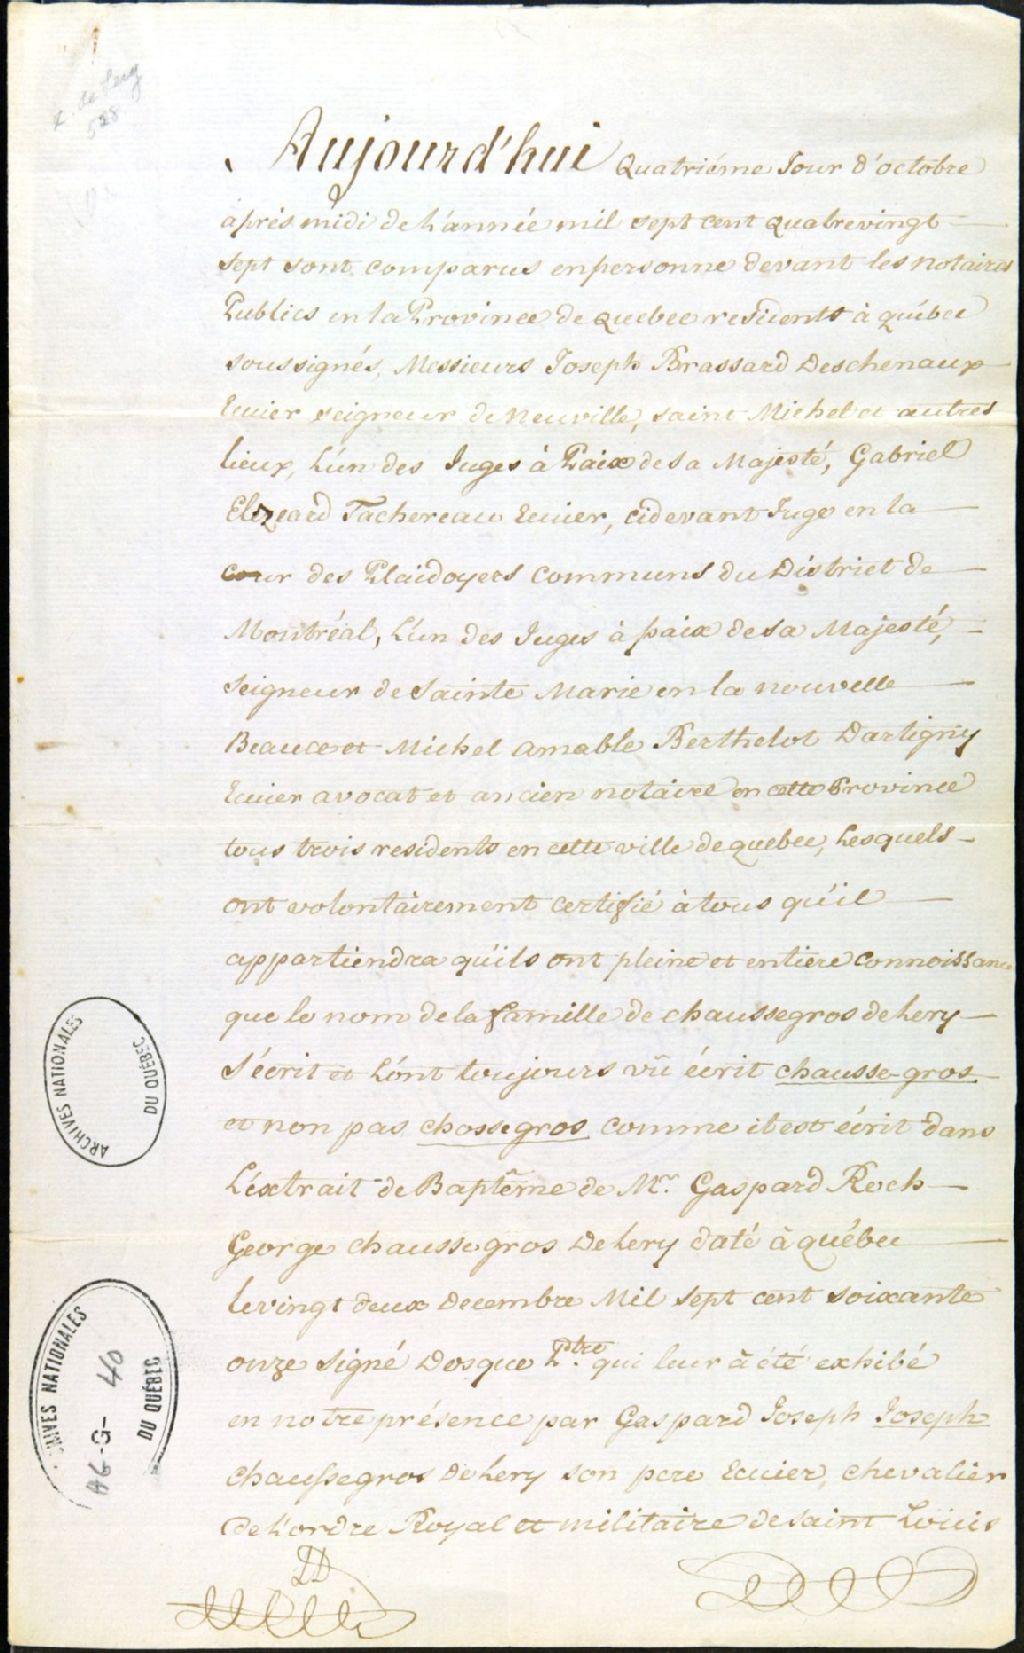 x. de Lery
528
Aujourd'hui Quatriéme Jour d'octobre
aprés midi de L'année mil sept cent quatrevingt
sept sont comparus en personne devant les notaires
Publics en la Province de Quebec residents à québec
soussignés, Messieurs Joseph Brassard Deschenaux
Ecuier seigneur de Neuville, saint Michel et autres
lieux, L'un des Juges à Paix de sa Majesté, Gabriel
Elzeard Tachereau Ecuier, cidevant Juge en la
cour des Plaidoyers Communs du District de
Montréal, L'un des Juges à paix de sa Majesté,
seigneur de Sainte Marie en la nouvelle
Beauce et Michel amable Berthelot Dartigny
Ecuier avocat et ancien notaire en cette Province
tous trois residents en cette ville de quebec, Lesquels
ont volontairement certifié à tous qu'il
appartiendra qu'ils ont pleine et entiere connoissance
que le nom de la famille de chaussegros de Lery
s'écrit et L'ont toujours vû écrit chausse-gros
et non pas chossegros comme il est écrit dans
L'extrait de Baptême de Mr. Gaspard Roch
George chaussegros De Lery daté à québec
le vingt deux Decembre Mil sept cent soixante
onze signé Dosque Ptre qui leur à été exhibé
en notre présence par Gaspard Joseph Joseph
chaussegros De Lery son pere Ecuier, chevalier
de L'ordre Royal et militaire de saint Loüis
DD
ARCHIVES NATIONALES
DU QUÉBEC
HIVES NATIONALES
DU QUÉBEC
AG-G-40